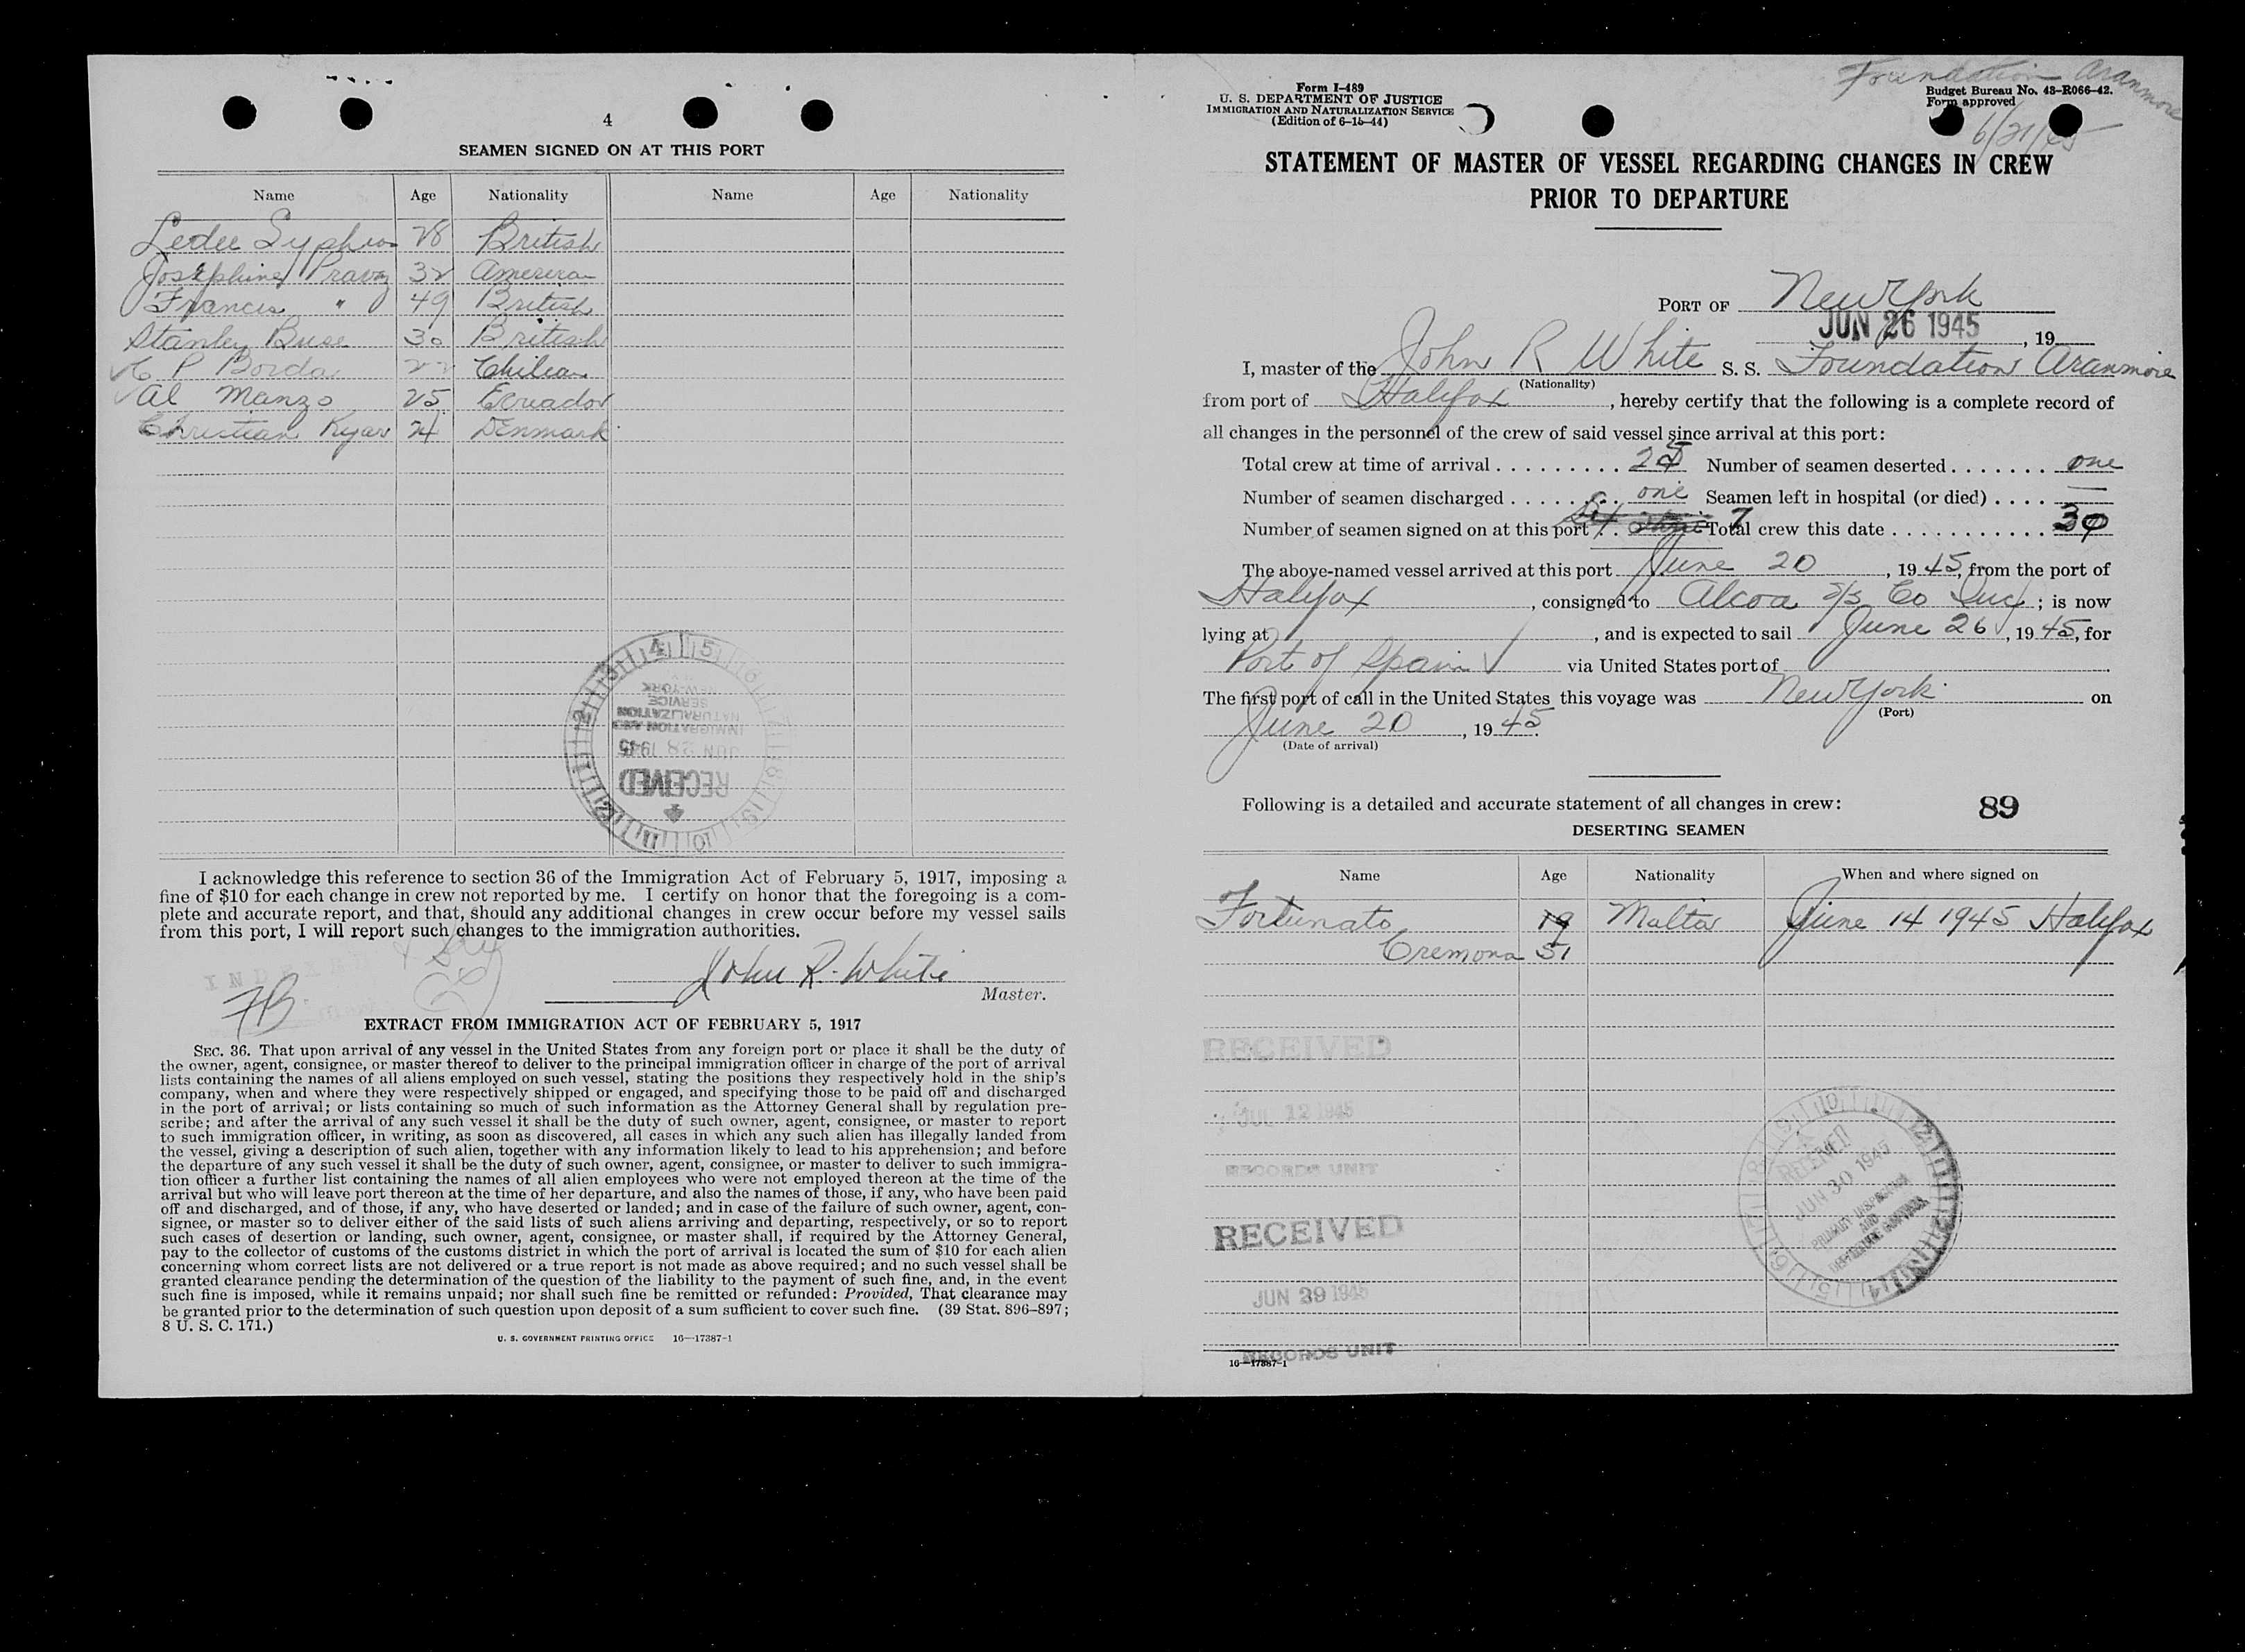 4
SEAMEN SIGNED ON AT THIS PORT
Name Age Nationality Name Age Nationality
28 British
Josephine 32 America
Francis " 49 British
Stanley Buse 30 British
C P Borda 22 Chilean
Al Manzo 25 Ecuador
Christian Kyar 24 Denmark
RECEIVED
JUN 28 1945
IMMIGRATION AND
NATURALIZATION
SERVICE
NEW YORK
I acknowledge this reference to section 36 of the Immigration Act of February 5, 1917, imposing a
fine of $10 for each change in crew not reported by me. I certify on honor that the foregoing is a com-
plete and accurate report, and that, should any additional changes in crew occur before my vessel sails
from this port, I will report such changes to the immigration authorities.
INDEXED
FB
John R. White
Master.
EXTRACT FROM IMMIGRATION ACT OF FEBRUARY 5, 1917
SEC. 36. That upon arrival of any vessel in the United States from any foreign port or place it shall be the duty of
the owner, agent, consignee, or master thereof to deliver to the principal immigration officer in charge of the port of arrival
lists containing the names of all aliens employed on such vessel, stating the positions they respectively hold in the ship's
company, when and where they were respectively shipped or engaged, and specifying those to be paid off and discharged
in the port of arrival; or lists containing so much of such information as the Attorney General shall by regulation pre-
scribe; and after the arrival of any such vessel it shall be the duty of such owner, agent, consignee, or master to report
to such immigration officer, in writing, as soon as discovered, all cases in which any such alien has illegally landed from
the vessel, giving a description of such alien, together with any information likely to lead to his apprehension; and before
the departure of any such vessel it shall be the duty of such owner, agent, consignee, or master to deliver to such immigra-
tion officer a further list containing the names of all alien employees who were not employed thereon at the time of the
arrival but who will leave port thereon at the time of her departure, and also the names of those, if any, who have been paid
off and discharged, and of those, if any, who have deserted or landed; and in case of the failure of such owner, agent, con-
signee, or master so to deliver either of the said lists of such aliens arriving and departing, respectively, or so to report
such cases of desertion or landing, such owner, agent, consignee, or master shall, if required by the Attorney General,
pay to the collector of customs of the customs district in which the port of arrival is located the sum of $10 for each alien
concerning whom correct lists are not delivered or a true report is not made as above required; and no such vessel shall be
granted clearance pending the determination of the question of the liability to the payment of such fine, and, in the event
such fine is imposed, while it remains unpaid; nor shall such fine be remitted or refunded: Provided, That clearance may
be granted prior to the determination of such question upon deposit of a sum sufficient to cover such fine. (39 Stat. 896–897;
8 U. S. C. 171.)
U. S. GOVERNMENT PRINTING OFFICE 16—17387-1
Foundation Aranmore
6/21/45
Form I-489
U. S. DEPARTMENT OF JUSTICE
IMMIGRATION AND NATURALIZATION SERVICE
(Edition of 6-15-44)
Budget Bureau No. 43-R066-42.
Form approved
STATEMENT OF MASTER OF VESSEL REGARDING CHANGES IN CREW
PRIOR TO DEPARTURE
PORT OF New York
JUN 26 1945, 19
I, master of the John R White S. S. Foundation Aranmore
(Nationality)
from port of Halifax, hereby certify that the following is a complete record of
all changes in the personnel of the crew of said vessel since arrival at this port:
Total crew at time of arrival 25 Number of seamen deserted one
Number of seamen discharged one Seamen left in hospital (or died) —
Number of seamen signed on at this port Six 7 Total crew this date 30
The above-named vessel arrived at this port June 20, 1945, from the port of
Halifax, consigned to Alcoa S/S Co Inc; is now
lying at , and is expected to sail June 26, 1945, for
Port of Spain via United States port of
The first port of call in the United States this voyage was New York on
(Port)
June 20, 1945.
(Date of arrival)
Following is a detailed and accurate statement of all changes in crew: 89
DESERTING SEAMEN
Name Age Nationality When and where signed on
Fortunato 19 Malta June 14 1945 Halifax
Cremona 51
RECEIVED
JUL 12 1945
RECORDS UNIT
RECEIVED
JUN 30 1945
PRIMARY INSPECTION
AND
RECEIVED
JUN 29 1945
RECORDS UNIT
16—17387-1